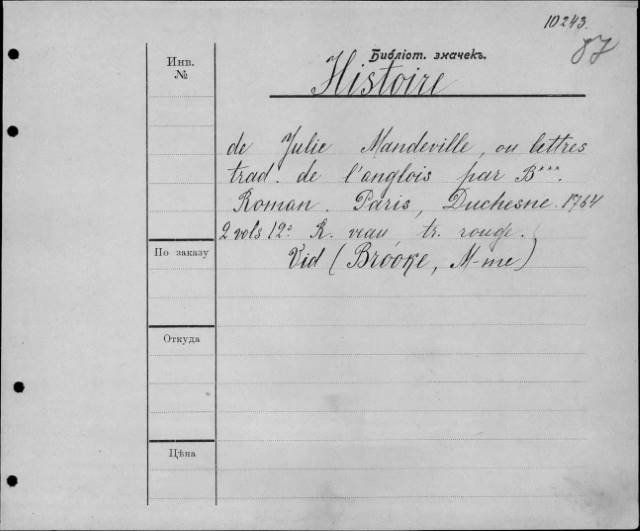 10243.
87
Инв.
№
Библіот. значекъ.
Histoire
de Julie Mandeville, ou lettres
trad. de l'anglois par B***.
Roman. Paris, Duchesne. 1764
2 vols 12º R. veau tr. rouge.
Vid (Brooke, M-me)
По заказу
Откуда
Цѣна